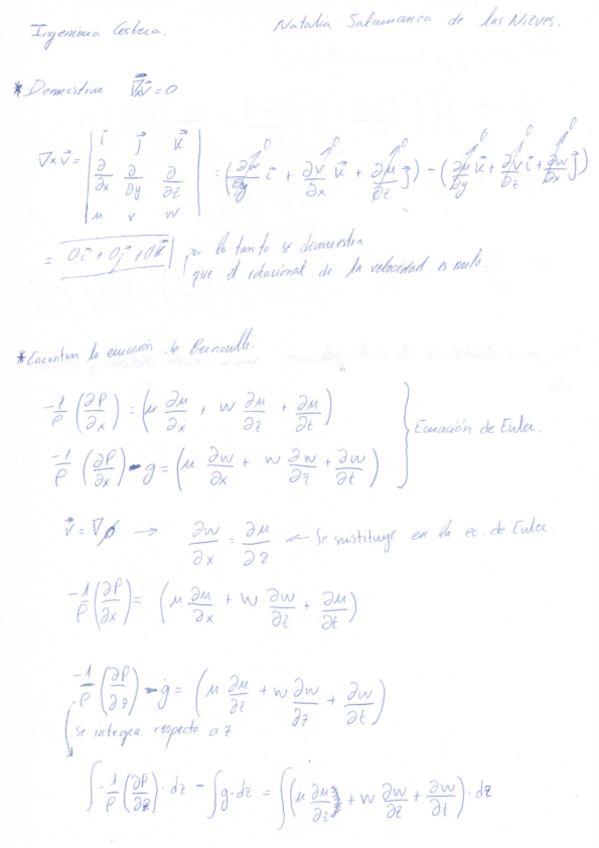 Ingenieria Costera. Natalia Salamanca de las Nieves.
* Demostrar ∇×v⃗ = 0
∇×v⃗ = | i⃗ j⃗ k⃗ ; ∂/∂x ∂/∂y ∂/∂z ; u v w | = (∂w/∂y i⃗ + ∂v/∂x k⃗ + ∂u/∂z j⃗) - (∂u/∂y k⃗ + ∂v/∂z i⃗ + ∂w/∂x j⃗)
0 0 0 0 0 0
= 0i⃗ + 0j⃗ + 0k⃗ | por lo tanto se demuestra
que el rotacional de la velocidad es nulo.
* Encontrar la ecuación de Bernoulli.
-1/ρ (∂P/∂x) = (u ∂u/∂x + w ∂u/∂z + ∂u/∂t)
-1/ρ (∂P/∂x) - g = (u ∂w/∂x + w ∂w/∂z + ∂w/∂t) } Ecuación de Euler.
v⃗ = ∇ϕ → ∂w/∂x = ∂u/∂z ← Se sustituye en la ec. de Euler.
-1/ρ (∂P/∂x) = (u ∂u/∂x + w ∂w/∂z + ∂u/∂t)
-1/ρ (∂P/∂z) - g = (u ∂u/∂z + w ∂w/∂z + ∂w/∂t)
se integra respecto a z
∫ -1/ρ (∂P/∂z) · dz - ∫ g · dz = ∫ (u ∂u/∂z + w ∂w/∂z + ∂w/∂t) · dz